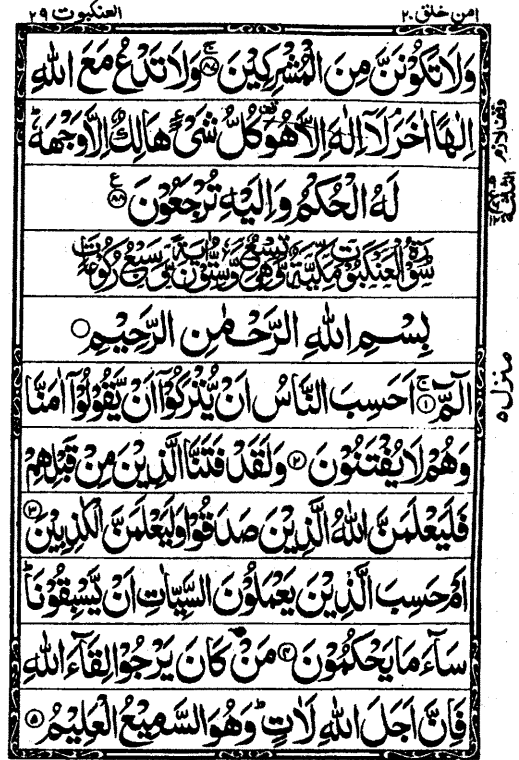 امن خلق ٢٠
العنكبوت ٢٩
وَلَا تَكُوْنَنَّ مِنَ الْمُشْرِكِيْنَ ۚ﴿٨٧﴾ وَلَا تَدْعُ مَعَ اللّٰهِ
اِلٰهًا اٰخَرَ ۘ لَآ اِلٰهَ اِلَّا هُوَ ۟ كُلُّ شَىْءٍ هَالِكٌ اِلَّا وَجْهَهٗ ؕ
لَهُ الْحُكْمُ وَ اِلَيْهِ تُرْجَعُوْنَ ﴿٨٨﴾ ع
سُوْرَةُ الْعَنْكَبُوْتِ مَكِّيَّةٌ وَّهِىَ تِسْعٌ وَّسِتُّوْنَ اٰيَةً وَّ سَبْعُ رُكُوْعَاتٍ
بِسْمِ اللّٰهِ الرَّحْمٰنِ الرَّحِيْمِ ○
الٓمّٓ ۚ﴿١﴾ اَحَسِبَ النَّاسُ اَنْ يُّتْرَكُوْٓا اَنْ يَّقُوْلُوْٓا اٰمَنَّا
وَهُمْ لَا يُفْتَنُوْنَ ﴿٢﴾ وَلَقَدْ فَتَنَّا الَّذِيْنَ مِنْ قَبْلِهِمْ
فَلَيَعْلَمَنَّ اللّٰهُ الَّذِيْنَ صَدَقُوْا وَلَيَعْلَمَنَّ الْكٰذِبِيْنَ ﴿٣﴾
اَمْ حَسِبَ الَّذِيْنَ يَعْمَلُوْنَ السَّيِّاٰتِ اَنْ يَّسْبِقُوْنَا ؕ
سَآءَ مَا يَحْكُمُوْنَ ﴿٤﴾ مَنْ كَانَ يَرْجُوْا لِقَآءَ اللّٰهِ
فَاِنَّ اَجَلَ اللّٰهِ لَاٰتٍ ؕ وَهُوَ السَّمِيْعُ الْعَلِيْمُ ﴿٥﴾
وقف لازم
منزل ٥